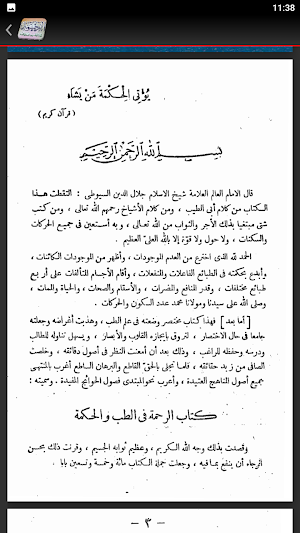 11:38
يؤتى الحكمة من يشاء
(قرآن كريم)
بسم الله الرحمن الرحيم
قال الامام العالم العلامة شيخ الاسلام جلال الدين السيوطى : التقطت هذا
الكتاب من كلام أبى الطيب ، ومن كلام الأشياخ رحمهم الله تعالى ، ومن كتب
شتى مبتغيا بذلك الأجر والثواب من الله تعالى ، وبه أستعين فى جميع الحركات
والسكنات ، ولا حول ولا قوة إلا بالله العلىّ العظيم .
الحمد لله الذى اخترع من العدم الموجودات ، وأظهر من الموجودات الكائنات ،
وأبدع بحكمته فى الطبائع الفاعلات والمنفعلات ، وأقام الأجسام المتآلفات على أربع
طبائع مختلفات ، وقدر النافع والمضرات ، والأسقام والصحات ، والحياة والممات ،
وصلى الله على سيدنا ومولانا محمد عدد السكون والحركات .
[أما بعد] فهذا كتاب مختصر وضعته فى علم الطب ، وهذبت أغراضه وجعلته
جامعا فى حال الاختصار ، لتروق بإيجازه القلوب والأبصار ، ويسهل تناوله للطالب
ودرسه وحفظه للراغب ، وذلك بعد أن أمعنت النظر فى أصول دقائقه ، وخلصت
الصافى من زبد حقائقه ، فلما تجلى بالحق القاطع والبرهان الساطع أغرب بالمنتهى
جميع أصول المناهج العتيدة ، وأعرب نحو المبتدى فصول الحوائج المفيدة . وسميته :
كتاب الرحمة فى الطب والحكمة
وقصدت بذلك وجه الله الكريم ، وعظيم ثوابه الجسيم ، وقرنت ذلك بحسن
الرجاء أن ينفع بما فيه ، وجعلت جملة الكتاب مائة وخمسة وتسعين بابا .
— ٣ —